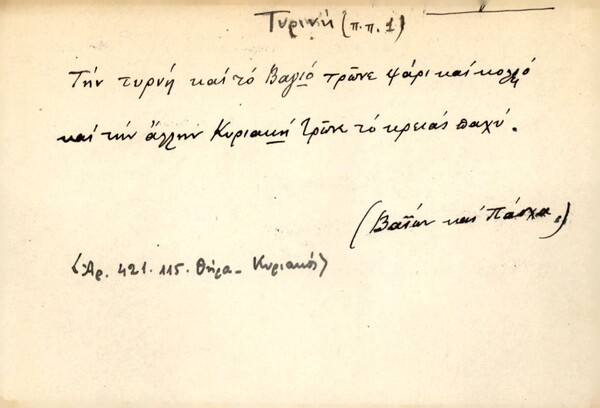 Τυρινή (π.π. 1)
Τήν τυρνή καί τό Βαγιό τρῶνε ψάρι καί κολιό
καί τήν ἄλλην Κυριακή τρῶνε τό κρειάς παχύ.
(Βαΐων καί Πάσχα.)
(Ἀρ. 421. 115. Θήρα - Κυριακός)